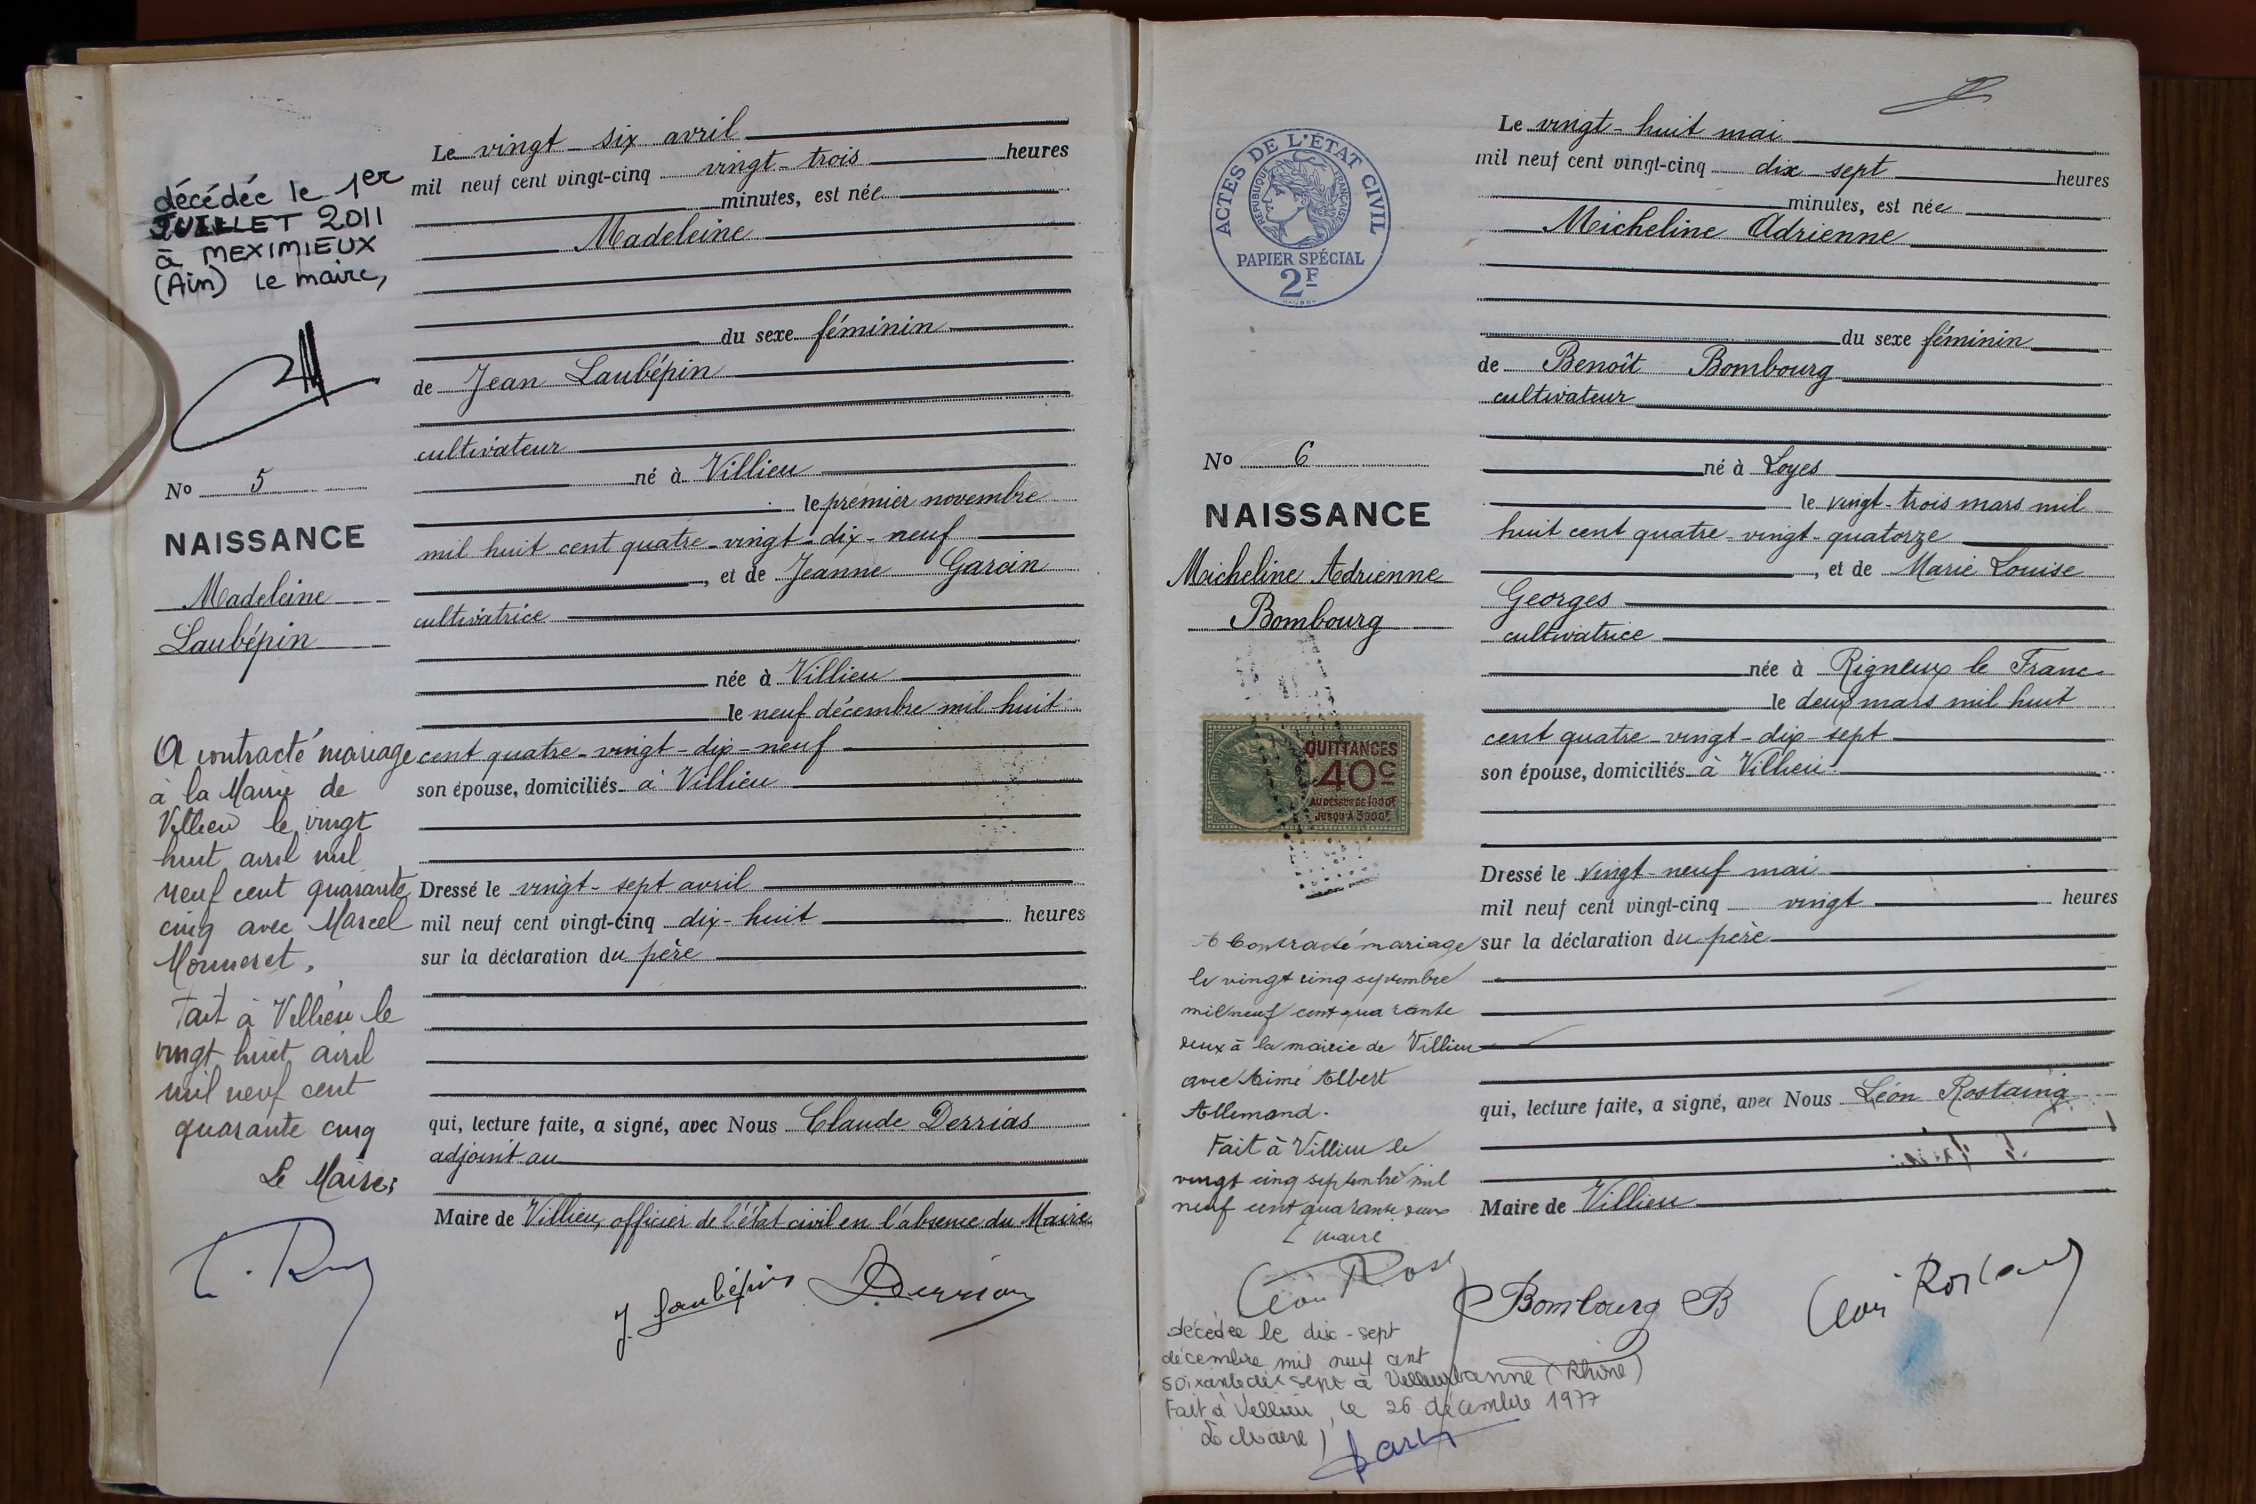 décédée le 1er
JUILLET 2011
à MEXIMIEUX
(Ain) le maire,
No 5
NAISSANCE
Madeleine
Laubépin
A contracté mariage
à la Mairie de
Villieu le vingt
huit avril mil
neuf cent quarante
cinq avec Marcel
Monneret.
Fait à Villieu le
vingt huit avril
mil neuf cent
quarante cinq
Le Maire;
Le vingt-six avril
mil neuf cent vingt-cinq vingt-trois heures
minutes, est née
Madeleine
du sexe féminin
de Jean Laubépin
cultivateur
né à Villieu
le premier novembre
mil huit cent quatre-vingt-dix-neuf
, et de Jeanne Garcin
cultivatrice
née à Villieu
le neuf décembre mil huit
cent quatre-vingt-dix-neuf
son épouse, domiciliés à Villieu
Dressé le vingt-sept avril
mil neuf cent vingt-cinq dix-huit heures
sur la déclaration du père
qui, lecture faite, a signé, avec Nous Claude Derrias
adjoint au
Maire de Villieu, officier de l'état civil en l'absence du Maire.
J. Laubépin Derrias
ACTES DE L'ÉTAT CIVIL
RÉPUBLIQUE FRANÇAISE
PAPIER SPÉCIAL
2F
No 6
NAISSANCE
Micheline Adrienne
Bombourg
QUITTANCES
40c
AU DESSUS DE 1000F
JUSQU'À 3000F
A contracté mariage
le vingt cinq septembre
mil neuf cent quarante
deux à la mairie de Villieu
avec Aimé Albert
Allemand.
Fait à Villieu le
vingt cinq septembre mil
neuf cent quarante deux
L maire
Léon Rost
décédée le dix-sept
décembre mil neuf cent
soixante dix sept à Villeurbanne (Rhône)
Fait à Villieu, le 26 décembre 1977
Le Maire
Le vingt-huit mai
mil neuf cent vingt-cinq dix-sept heures
minutes, est née
Micheline Adrienne
du sexe féminin
de Benoît Bombourg
cultivateur
né à Loyes
le vingt-trois mars mil
huit cent quatre-vingt-quatorze
, et de Marie Louise
Georges
cultivatrice
née à Rigneux le Franc
le deux mars mil huit
cent quatre-vingt-dix-sept
son épouse, domiciliés à Villieu
Dressé le vingt-neuf mai
mil neuf cent vingt-cinq vingt heures
sur la déclaration du père
qui, lecture faite, a signé, avec Nous Léon Rostaing
Maire de Villieu
Bombourg B Léon Rostaing